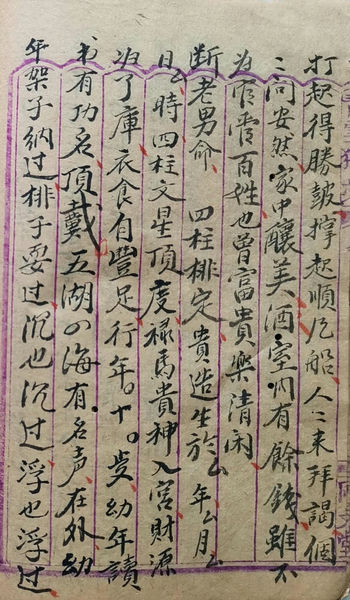 打起得勝皷撑起順风船人〻来拜謁個
〻问安然家中釀美酒室内有餘錢雖不
为官霄百姓也曾富貴樂清闲
断老男命 四柱排定貴造生於厶年厶月厶
日厶時四柱文星頂度禄馬貴神入宫财源
为了庫衣食自豐足行年。十。歲幼年讀
书有功名頂戴五湖四海有名声在外幼
年架子納过排子耍过沉也沉过浮也浮过